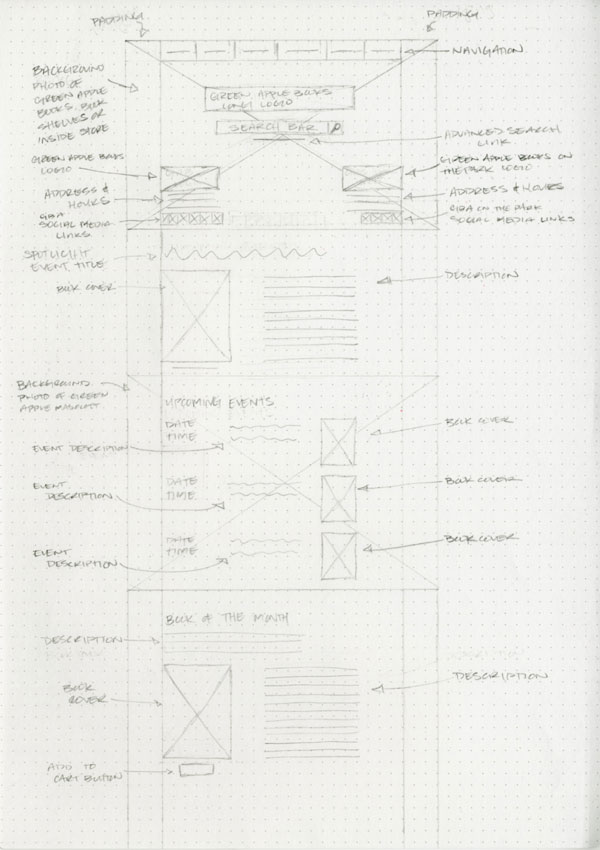 PADDING
PADDING
NAVIGATION
BACKGROUND
PHOTO OF
GREEN APPLE
BOOKS, BOOK
SHELVES OR
INSIDE STORE
GREEN APPLE BOOKS
LONG LOGO
SEARCH BAR
ADVANCED SEARCH
LINK
GREEN APPLE BOOKS
LOGO
GREEN APPLE BOOKS ON
THE PARK LOGO
ADDRESS &
HOURS
ADDRESS & HOURS
GBA
SOCIAL MEDIA
LINKS
GBA ON THE PARK
SOCIAL MEDIA LINKS
SPOTLIGHT
EVENT TITLE
BOOK COVER
DESCRIPTION
BACKGROUND
PHOTO OF GREEN
APPLE MASCOT
UPCOMING EVENTS
DATE
TIME
BOOK COVER
EVENT DESCRIPTION
EVENT
DESCRIPTION
DATE
TIME
BOOK COVER
EVENT
DESCRIPTION
DATE
TIME
BOOK COVER
BOOK OF THE MONTH
DESCRIPTION
DESCRIPTION
BOOK
COVER
ADD TO
CART BUTTON